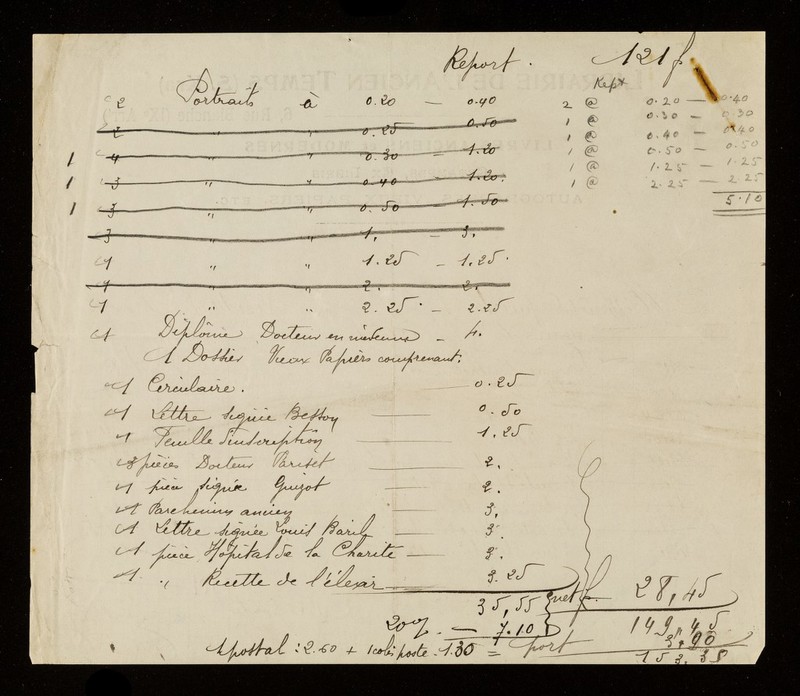 Report . 121 f
Kept
2 Portraits à 0.20 — 0.40 2 @ 0.20 — 0.40
2 " " 0.25 0.50 1 @ 0.30 — 0.30
1 4 " " 0.30 — 1.20 1 @ 0.40 — 0.40
1 3 " " 0.40 — 1.20. 1 @ 0.50 — 0.50
1 3 " " 0.50 — 1.50 1 @ 1.25 — 1.25
1 @ 2.25 — 2.25
5.10
3 " " 1, — 3,
1 " " 1.25 — 1.25.
1 " " 2. 2.
1 " " 2.25. — 2.25
1 Diplôme Docteur en médecine — 4.
1 Dossier Vieux Papiers comprenant:
1 Circulaire. — 0.25
1 Lettre signée Besson — 0.50
1 Feuille d'inscription — 1,25
3 pièces Docteur Pariset — 2.
1 pièce signée Guizot — 2.
1 Parchemin ancien — 3,
1 Lettre signée Louis Baril — 3.
1 pièce Hôpital de la Charité — 3.
1 " Recette de l'élexir — 3.25
35,55 net f. 28,45
20% — 7.10 149,45
postal : 2.60 + 1 colis poste . 1.30 = port 3,90
153,35